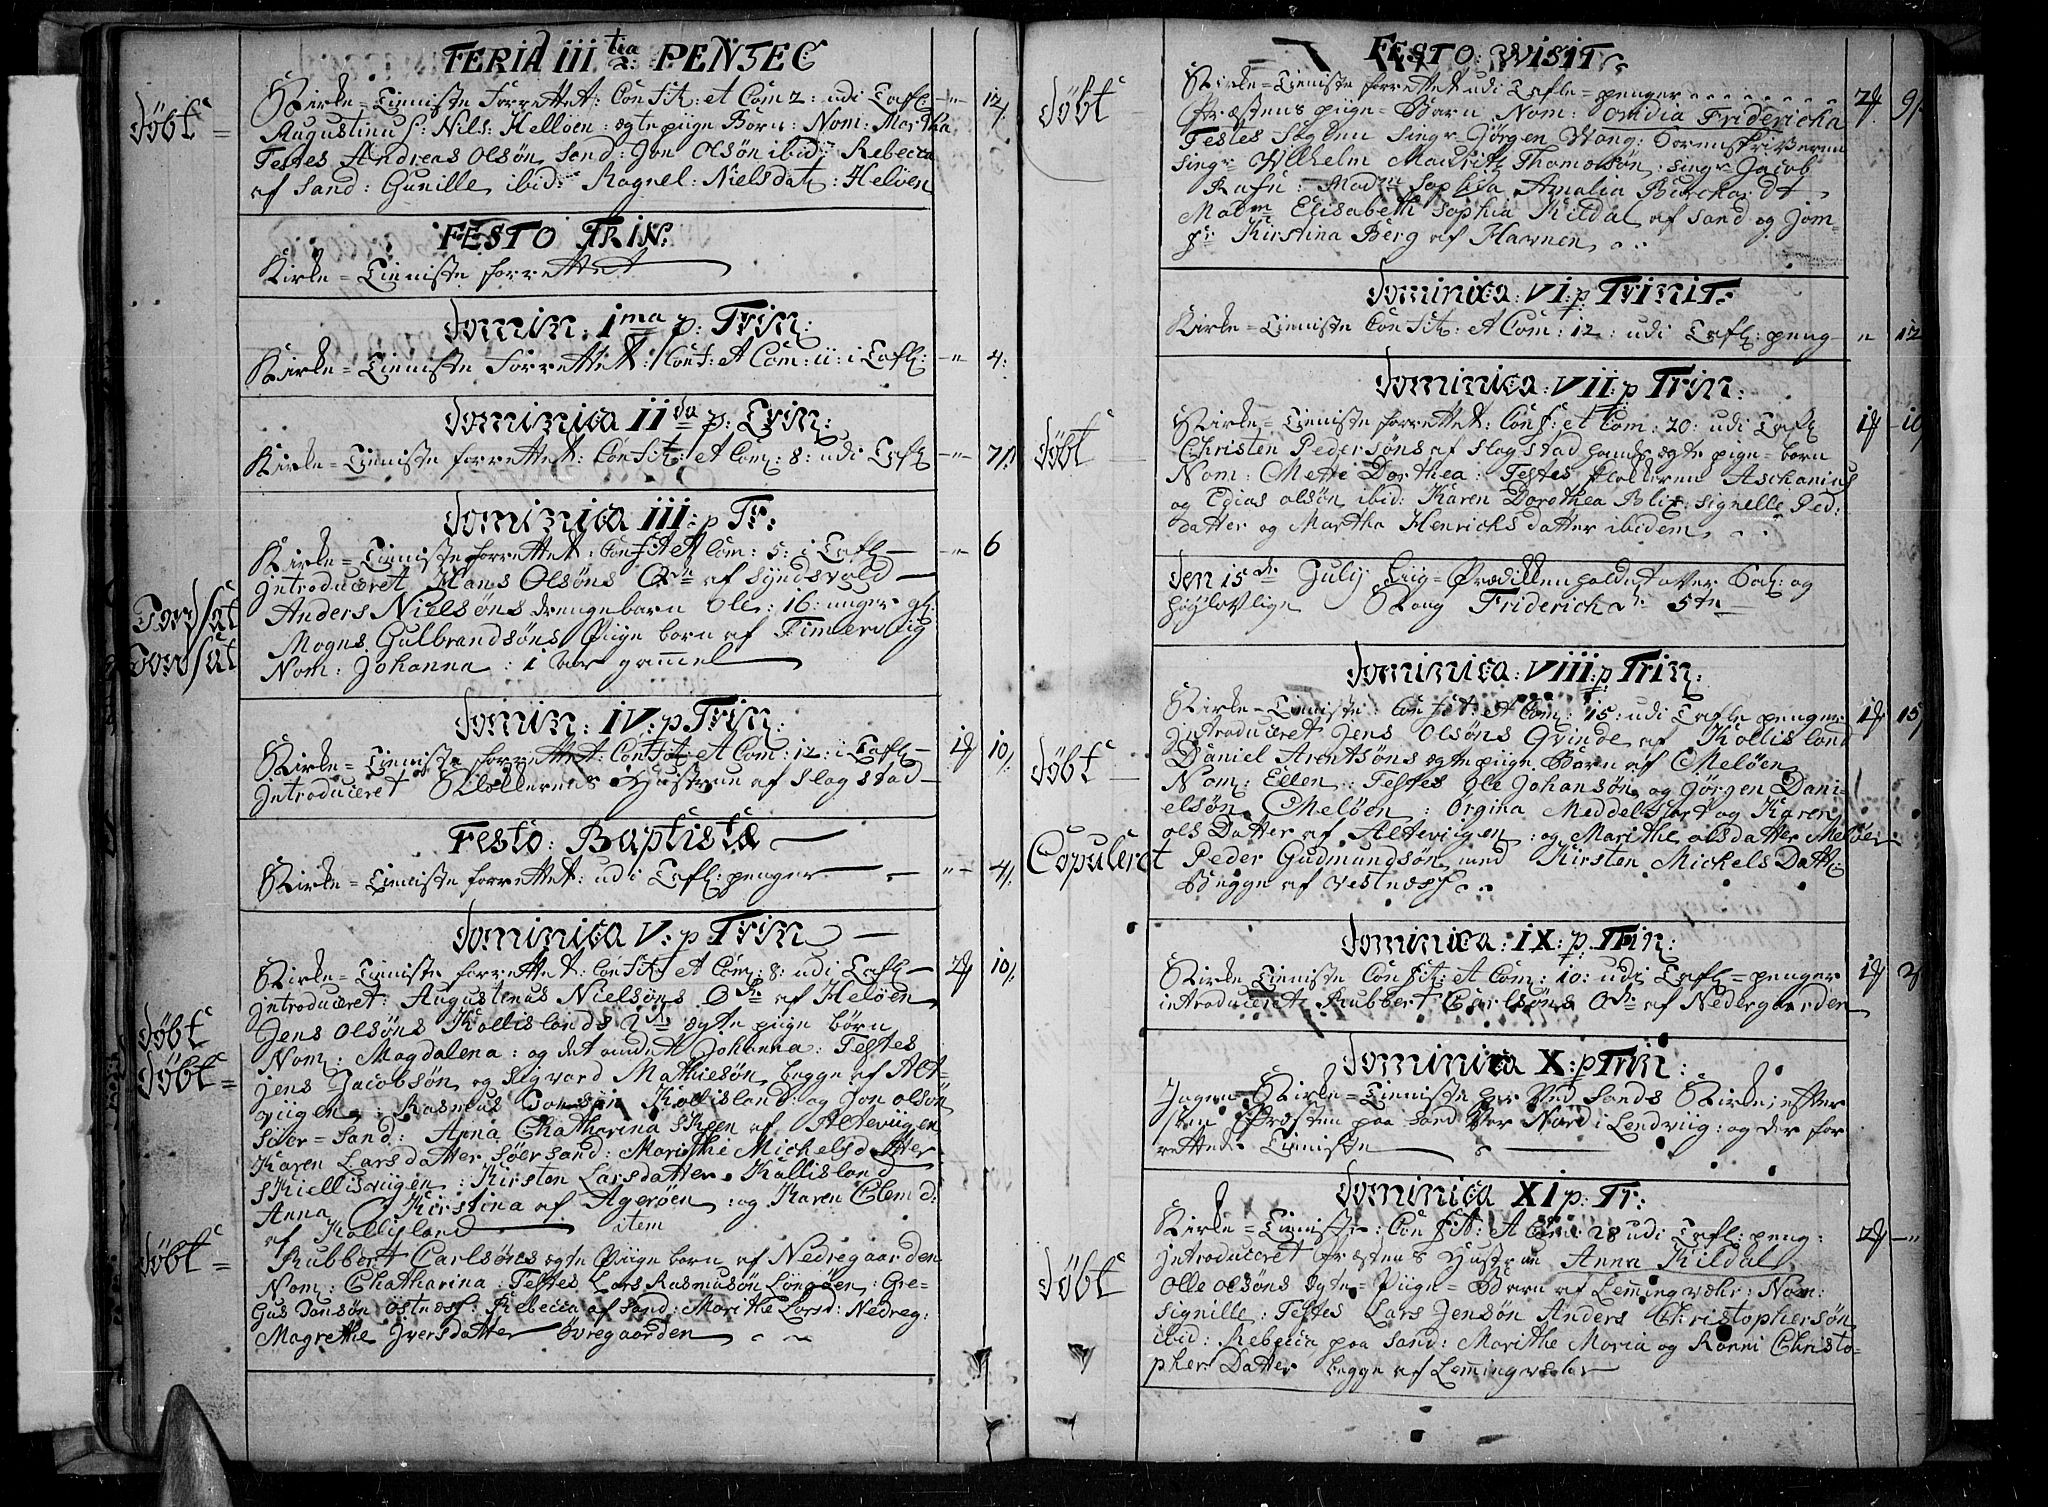 FERIA III tia PENTEC
Kirke=Tieniste Forrettet: Confit: et Com 2: udi Tafl: — „ — 12/
Døbt =
Augustinus: Nils: Helløen: ægte piige Barn: Nom: Martha
Testes Andreas Olsøn Sand: Jon Olsøn ibid: Rebecca
af Sand: Gunille ibid: Ragnel: Nielsdat: Heløen
FESTO TRIN:
Kirke=Tieniste forrettet
Domin: 1ma p: Trin:
Kirke=Tieniste Forrettet: Conf: et Com: 11: i Tafl: — „ — 4:
Dominica IIda p: Trin:
Kirke=Tieniste forrettet: Confit: et Com: 8: udi Tafl — „ — 7/
Dominica III: p Tr:
Kirke=Tieniste forrettet: Confit et Com: 5: i Tafl — „ — 6
introduceret Hans Olsøns Qve af Syndsvold
Anders Nielsøns drengebarn Ole: 16: uuger gl:
Mogns Gulbrandsøns Piige barn af Fimerviig
Nom: Johanna: 1 aar gammel
Domin: IV: p Trin:
Kirke=Tieniste forrettet: Confit: et Com: 12: i Tafl — 1 10/
introduceret Hustrue af Slagstad
Festo: Baptistæ
Kirke=Tieniste forrettet: udi Tafl: penger — „ — 4/
Dominica V: p Trin
Kirke=Tieniste forrettet: Confit et Com: 8: udi Tafl — 2 10/
introduceret: Augustinus Nielsøns Qve af Heløen
Døbt
Jens Olsøns Kollislands 2de ægte piige børn
Døbt =
Nom: Magdalena: og det andet Johanna: Testes
Jens Jacobsøn og Sigvard Mathiesøn begge af Alt=
viigen: Rasmus Kollisland: og Jon olsøn
Søer=Sand: Anna Chatharina Skeen af Alteviigen
Karen Larsdatter Søersand: Marithe Michelsdatter
Skiellisviigen: Kirsten Larsdatter Kallisland
Anna Kirstina af Agerøen: og Karen Clemd:
af Kollisland item
Døbt =
Rubbert Carlsøns ægte Piige barn af Nedregaarden
Nom: Chatharina: Testes Lars Rasmusøn Longøen: Gre=
gus Jonsøn Østnæss: Rebecca af Sand: Marithe Larsd: Nedreg:
Magrethe Iversdatter Øvregaarden
FESTO: WISIT:
Kirke=Tieniste forrettet udi Tafle=penger 2 9/
Døbt
Præstens piige=Barn Nom: Fridericka
Testes Singr Jørgen Wang: Sorenskriveren
Singr Wilhelm Mauritz Thomosøn: Singr Jacob
Rafn: Madm Sophia Amalia Burchardt
Madm Elisabeth Sophia Kildal af Sand og Jom=
fr Kirstina Berg af Havnen
Dominica: VI: p Trinit:
Kirke=Tieniste Confit: et Com: 12: udi Tafl: peng — „ 12
Dominica: VII: p Trin:
Kirke=Tieniste forrettet: Conf: et Com: 20: udi Tafl 1 10/
Døbt
Christen Pedersøns af Slagstad hands ægte piige=barn
Nom: Mette Dorthea: Testes Ascanius
og Edias olsøn ibid: Karen Dorothea Blix: Signelle Ped:
datter og Martha Henrichsdatter ibidem
Den 15de July Liig=Prædikken holdet over Sal: og
høylovlige Kong Friderich den 5te
Dominica: VIII: p Trin:
Kirke=Tieniste: Confit: et Com: 15: udi Tafle penger 1 15/
introduceret Jens Olsøns Qvinde af Kollisland
Døbt
Daniel Arentsøns ægte piige Barn af Meløen
Nom: Ellen: Testes Ole Johansøn og Jørgen Dani=
elsøn Meløen: Orgina Meddelfart og Karen
ols Datter af Alteviigen: og Marithe olsdatter Meløen
Copuleret Peder Gudmandsøn med Kirsten Mickels Datt:
Begge af Vestnæss
Dominica: IX: p: Trin:
Kirke Tieniste Confit: et Com: 10: udi Tafl=penger 1 2
introduceret Rubbert Carlsøns Qve af Nedergaarden
Dominica X: p Trin:
Ingen Kirke=Tieniste her ved Sands Kirke; efter
som Præsten paa Sand var Nord i Lendviig: og der for
rettede Tieniste
Dominica XI p: Tr:
Kirke=Tieniste: Confit: et Com: 28 udi Tafl: peng: 2 — „
introduceret Præstens Hustrue Anna Kildal
Døbt
Olle olsøns ægte=Piige=Barn af Lemingvæhr: Nom:
Signille: Testes Lars Jensøn Anders Christophersøn
ibid: Rebecca paa Sand: Marithe Maria og Ranni Christo=
pher Datter begge af Lemingvæhr